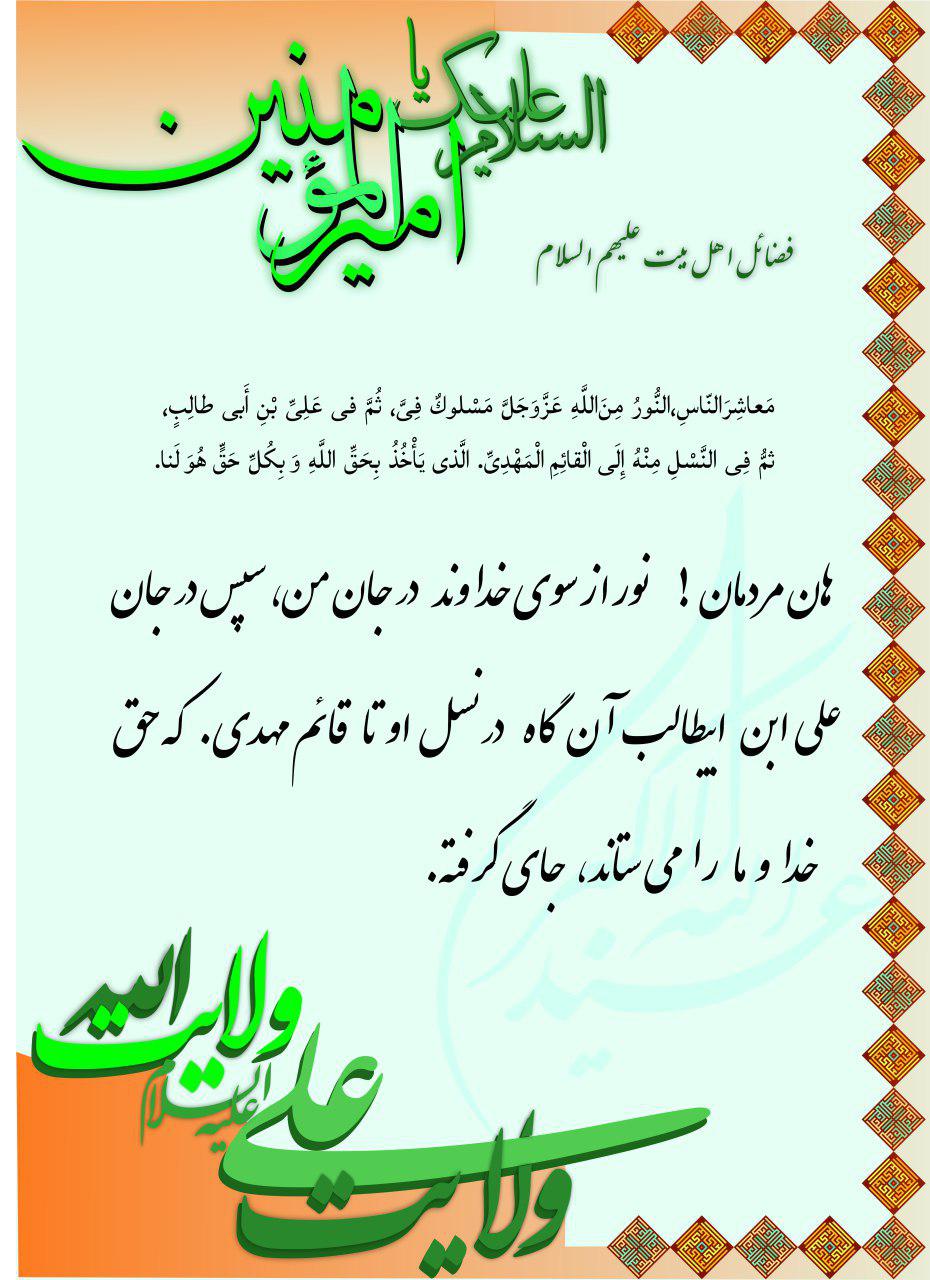 السلام علیک یا
امیرالمؤمنین
فضائل اهل بیت علیهم السلام
مَعاشِرَالنّاسِ،النُّورُ مِنَ‌اللَّهِ عَزَّوَجَلَّ مَسْلوكٌ فِىَّ، ثُمَّ فى عَلِىِّ بْنِ أَبى طالِبٍ،
ثمُّ فِى النَّسْلِ مِنْهُ إِلَى الْقائِمِ الْمَهْدِىِّ. الَّذى يَأْخُذُ بِحَقِّ اللَّهِ وَ بِكُلِّ حَقٍّ هُوَ لَنا.
هان مردمان ! نور از سوی خداوند در جان من، سپس در جان
علی ابن ابیطالب آن گاه در نسل او تا قائم مهدی. که حق
خدا و ما را می ستاند، جای گرفته.
عید الله الاکبر
ولایت الله
ولایت علی علیه السلام